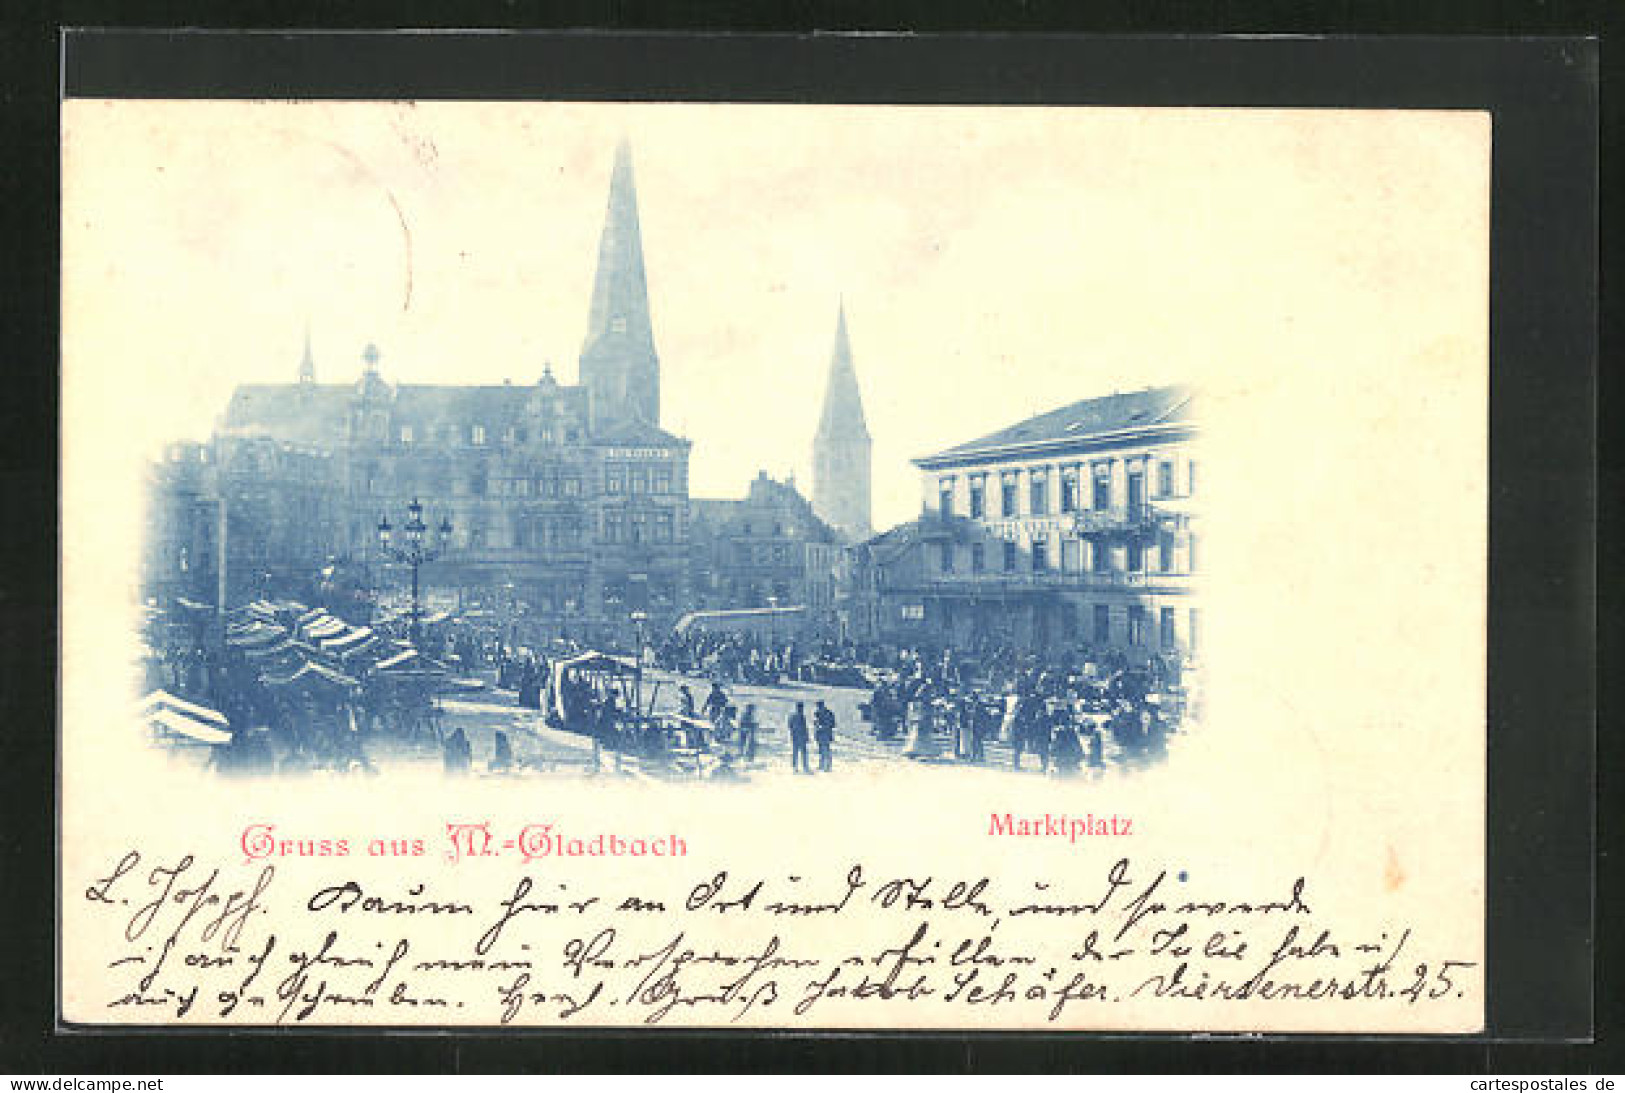 Gruss aus M.-Gladbach
Marktplatz
L. Joseph. Kaum hier an Ort und Stelle, und so werde
ich auch gleich mein Versprechen erfüllen der Julie habe ich
auch geschrieben. Herzl. Gruß Jakob Schäfer. Viersenerstr. 25.
www.cartespostales.com
cartespostales de